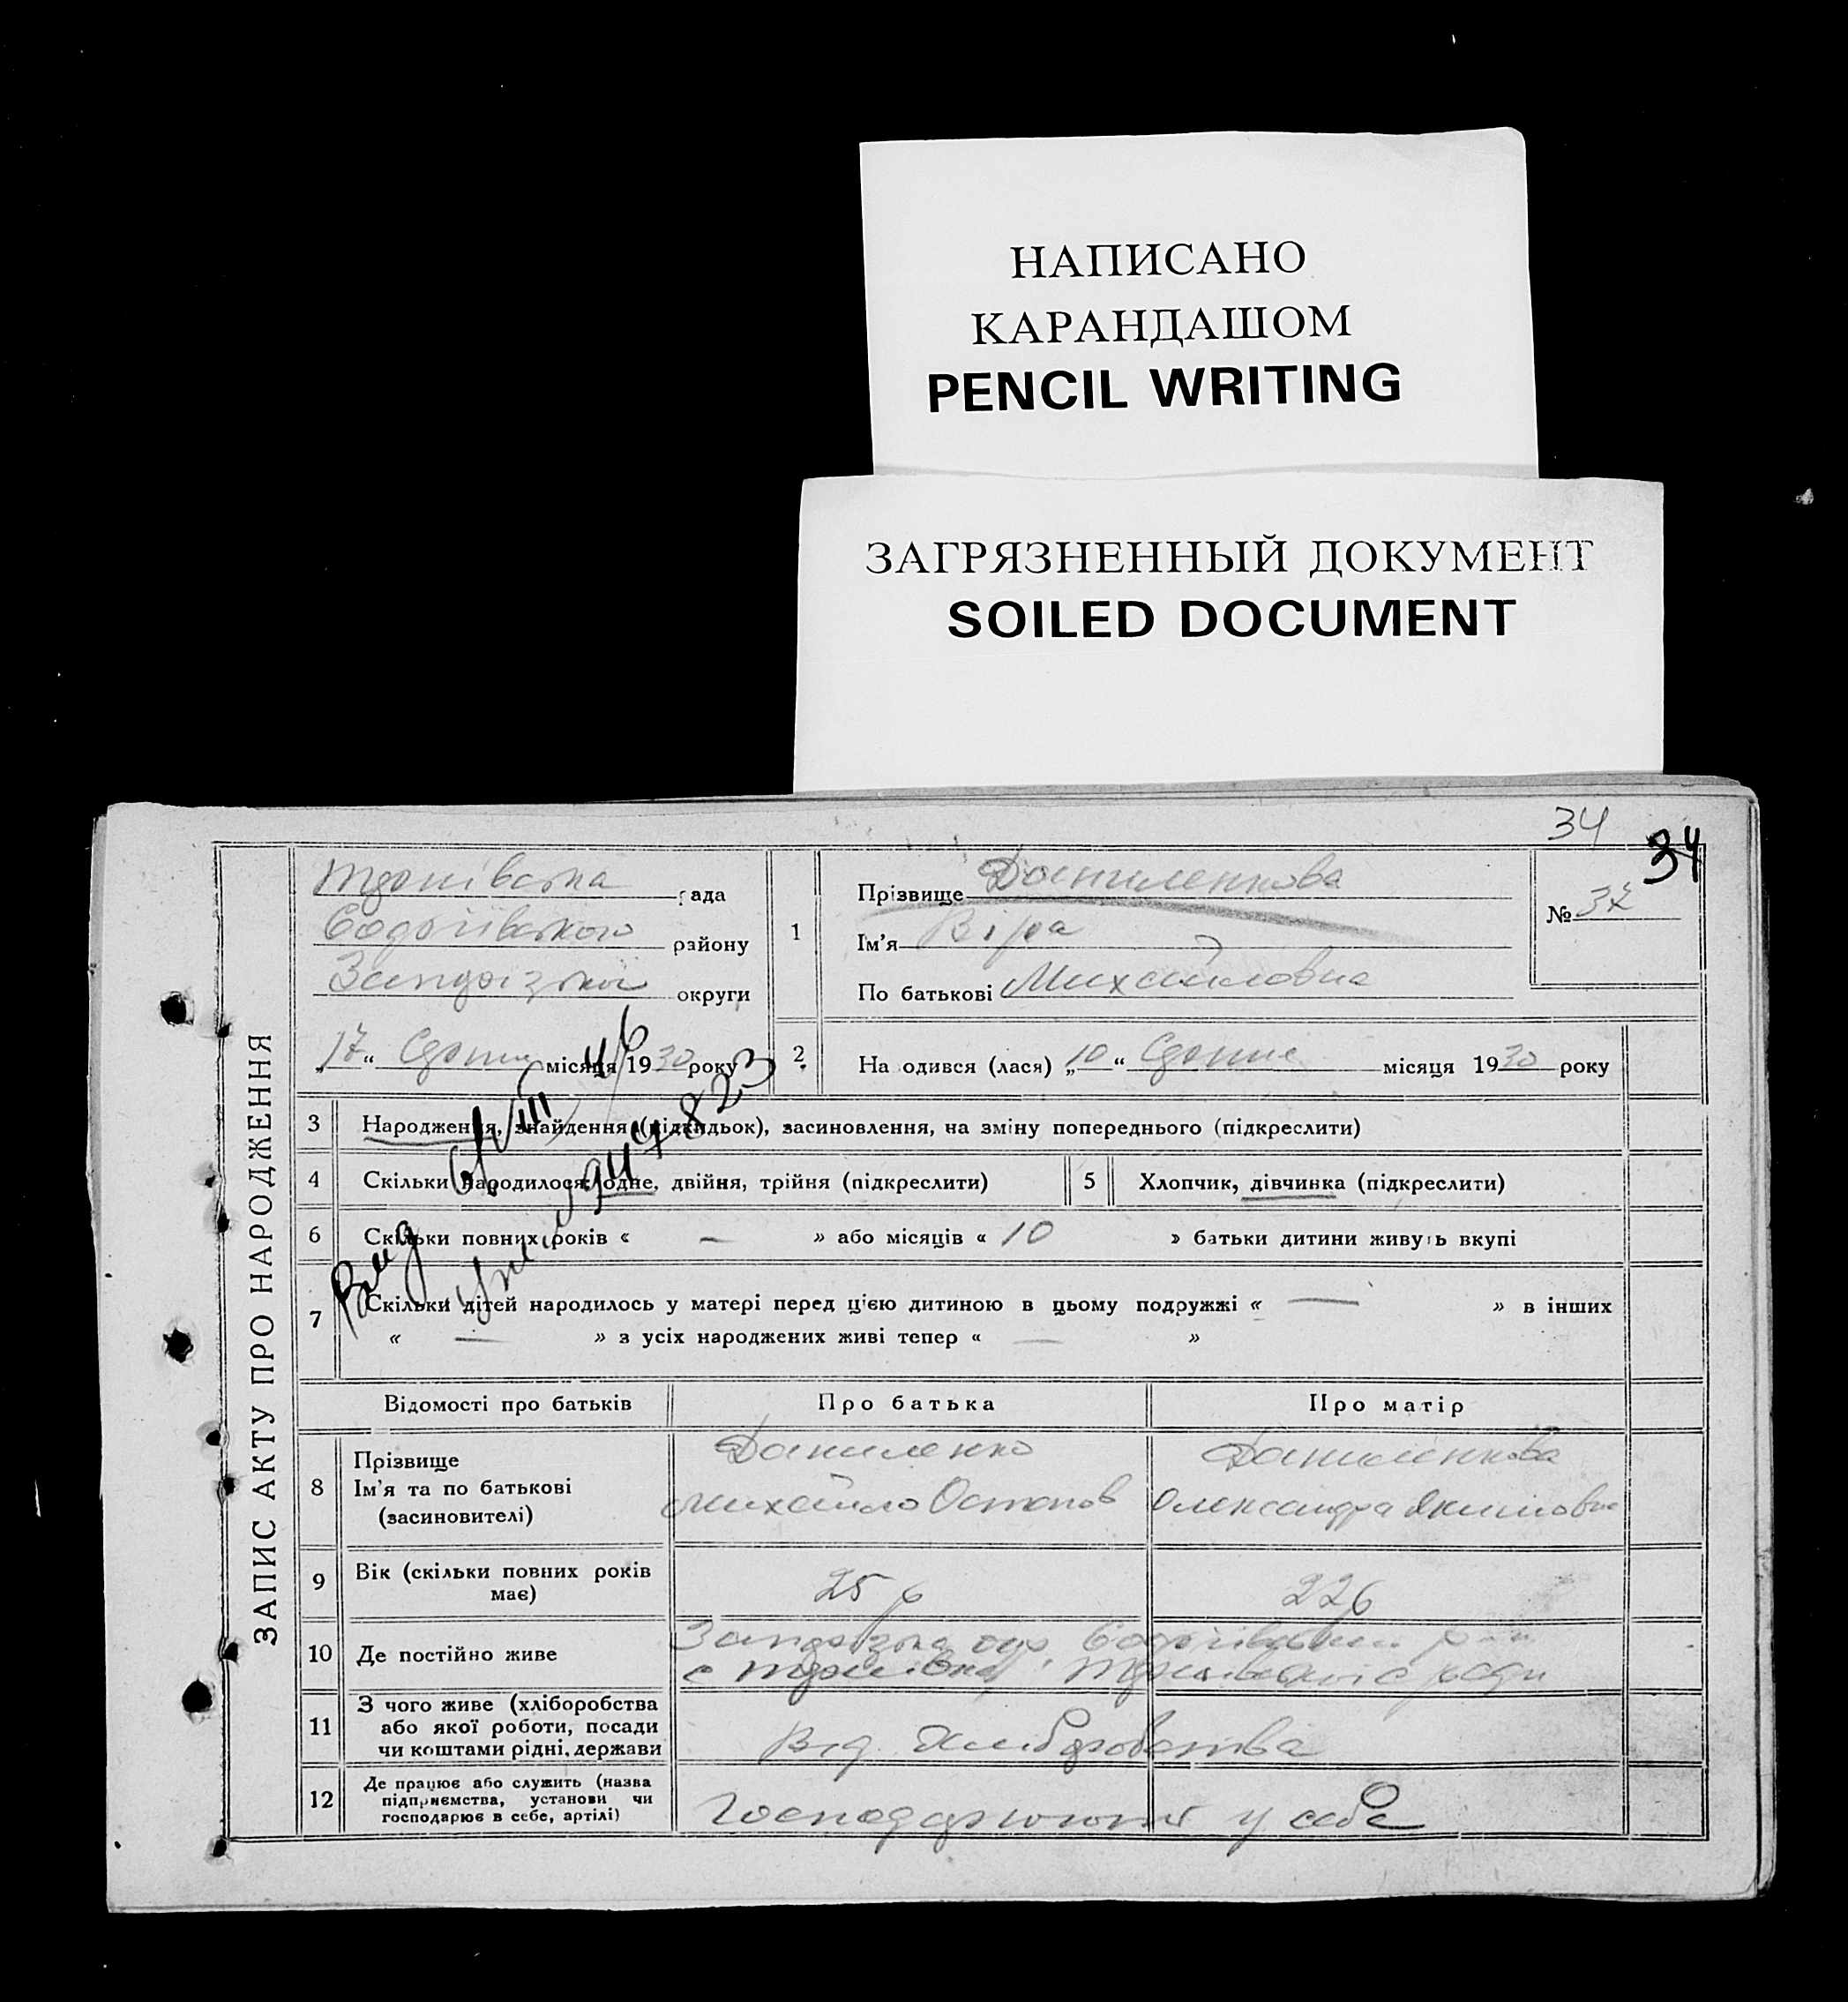 НАПИСАНО
КАРАНДАШОМ
PENCIL WRITING
ЗАГРЯЗНЕННЫЙ ДОКУМЕНТ
SOILED DOCUMENT
34
34
ЗАПИС АКТУ ПРО НАРОДЖЕННЯ
рада
району
округи
„17“ місяця 1930 року
1
Прізвище Даниленкова
Ім'я Віра
По батькові Михайловна
№
2
Народився (лася) „10“ місяця 1930 року
3 Народження, знайдення (підкидьок), засиновлення, на зміну попереднього (підкреслити)
4 Скільки народилося: одне, двійня, трійня (підкреслити)
5 Хлопчик, дівчинка (підкреслити)
6 Скільки повних років « — » або місяців « 10 » батьки дитини живуть вкупі
7 Скільки дітей народилось у матері перед цією дитиною в цьому подружжі « — » в інших
« — » з усіх народжених живі тепер « — »
Відомості про батьків Про батька Про матір
8 Прізвище
Ім'я та по батькові
(засиновителі)
Даниленко
Михайло Остапов
Даниленкова
Олександра Якимовна
9 Вік (скільки повних років
має)
25 р
22 р
10 Де постійно живе
11 З чого живе (хліборобства
або якої роботи, посади
чи коштами рідні, держави
Від Хліборобства
12 Де працює або служить (назва
підприємства, установи чи
господарює в себе, артілі)
Господарюють у себе